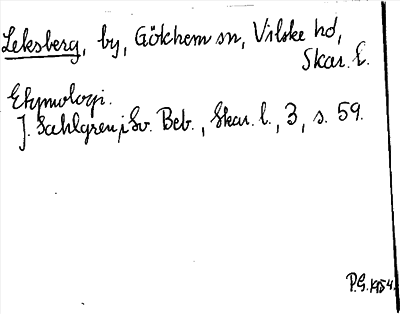 Leksberg, by, Götchem sn, Vilske hd,
Skar. l.
Etymologi.
J. Sahlgren, i Sv. Beb., Skar. l., 3, s. 59.
P.G. 1954.